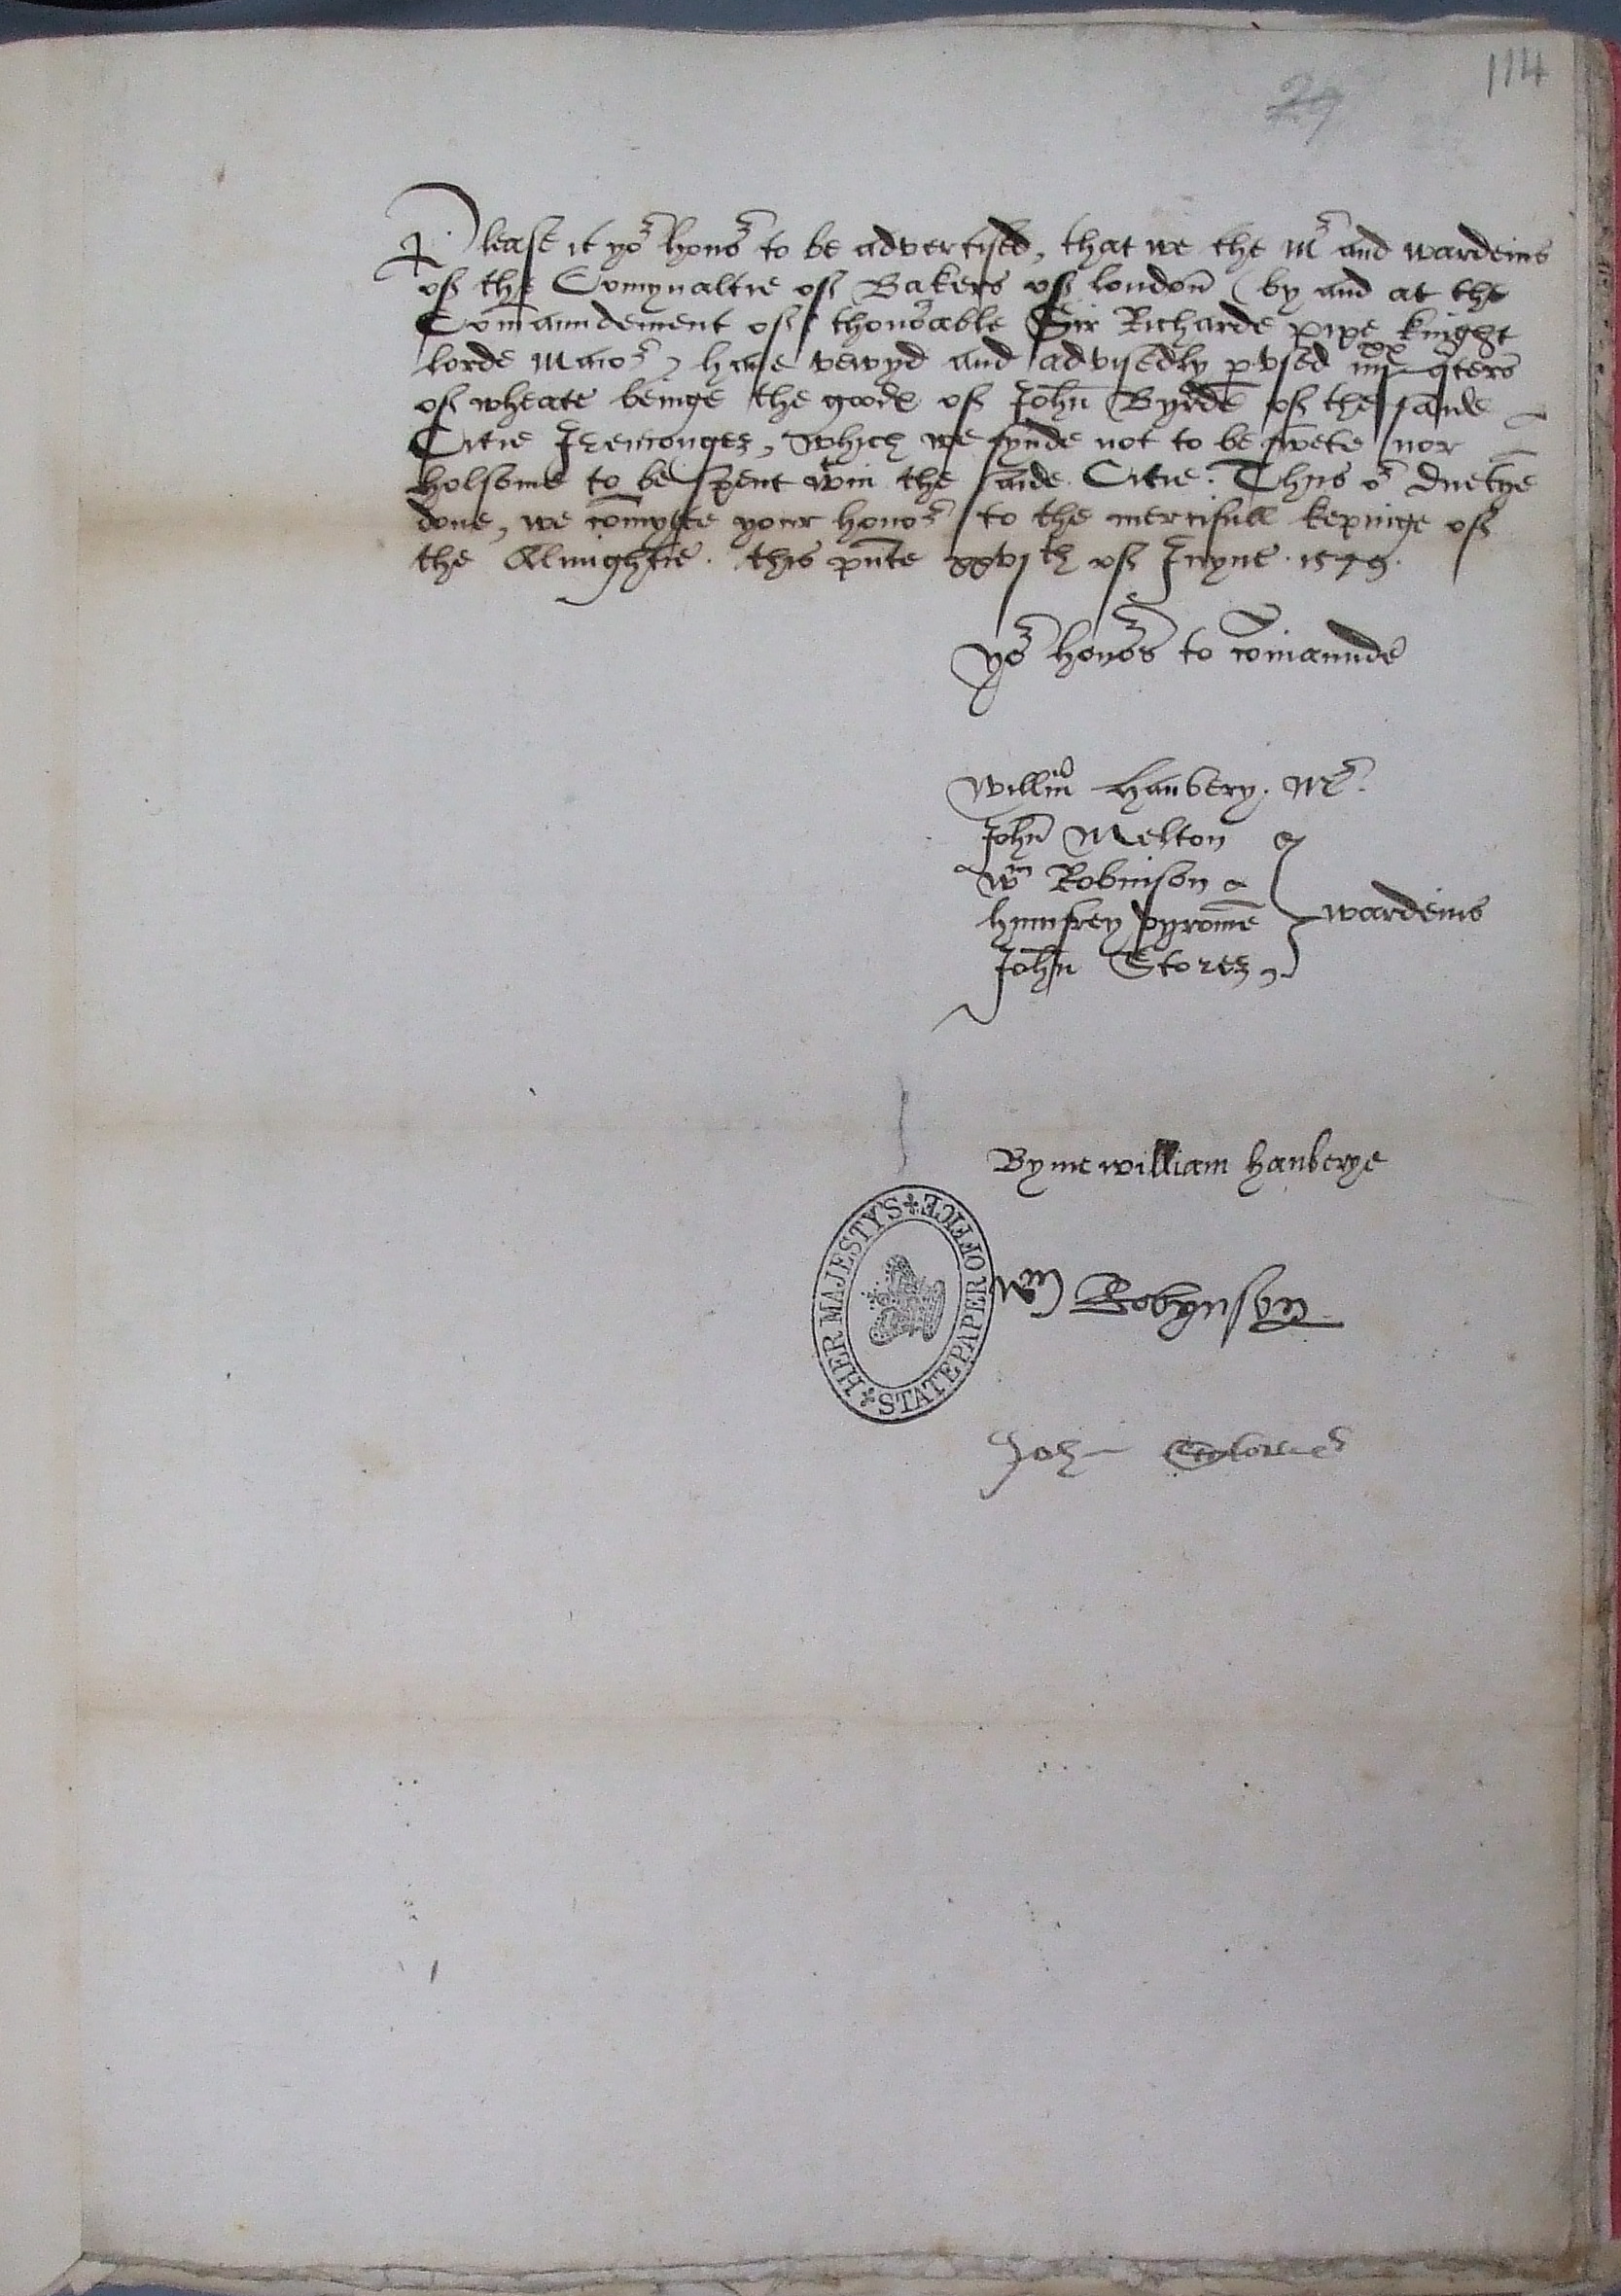 114
29
Please it yor honors to be advertised, that we the Mr and wardeins
of the Comynaltie of Bakers of london (by and at the
Comaundement of thonorable Sir Richarde pipe knight
lorde Maior) have vewyd and advisedly pvsed iiijxx qters
of wheate beinge the goods of John Byrde of the saide
Citie Iremonger, which we fynde not to be swete nor
holsome to be spent wtin the saide Citie. Thus or duetye
done, we comytte your honors to the mercifull kepinge of
the Almightie. this pnte xxvjth of Iuyne. 1579.
Yor honors to comaunde
Willm Hanbery. Mr.
John Melton
Wm Robinson
Humfrey
John Storer
wardeins
By me william hanberye
Wm Robynson
John Storer
HER MAJESTY'S STATE PAPER OFFICE